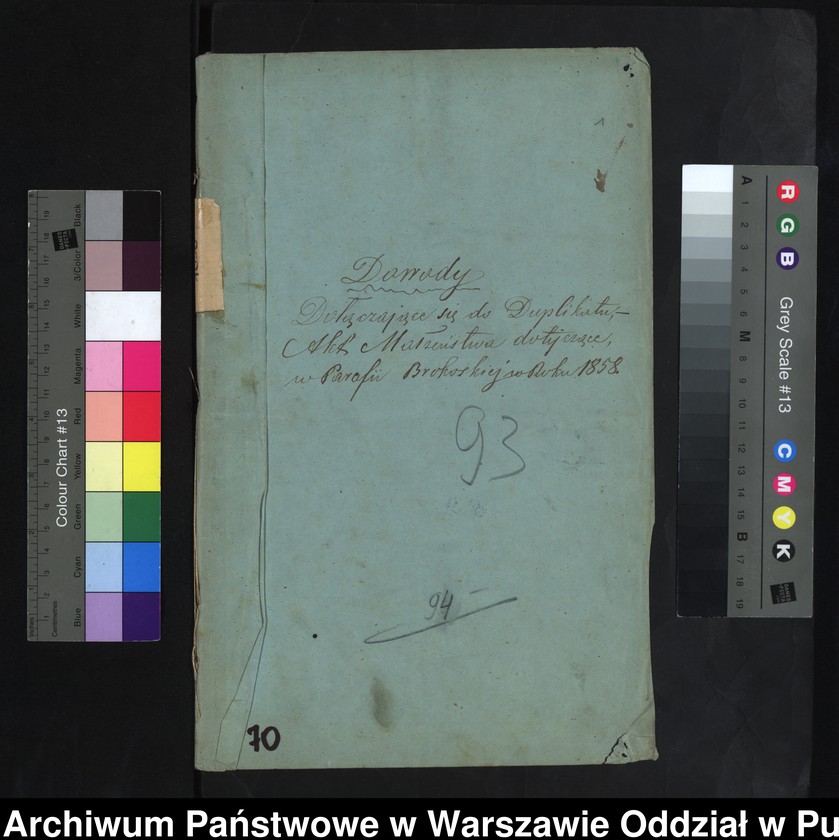 Dowody
Dołączające się do Duplikatu,
Akt Małżeństwa dotyczące,
w Parafii Brokoskiej w Roku 1858
93
94
70
Colour Chart #13
Black
3/Color
White
Magenta
Red
Yellow
Green
Cyan
Blue
Inches
Centimetres
DANES
PICTA
Grey Scale #13
R
G
B
C
M
Y
K
A
1
2
3
4
5
6
M
8
9
10
11
12
13
14
15
B
17
18
19
Archiwum Państwowe w Warszawie Oddział w Pu